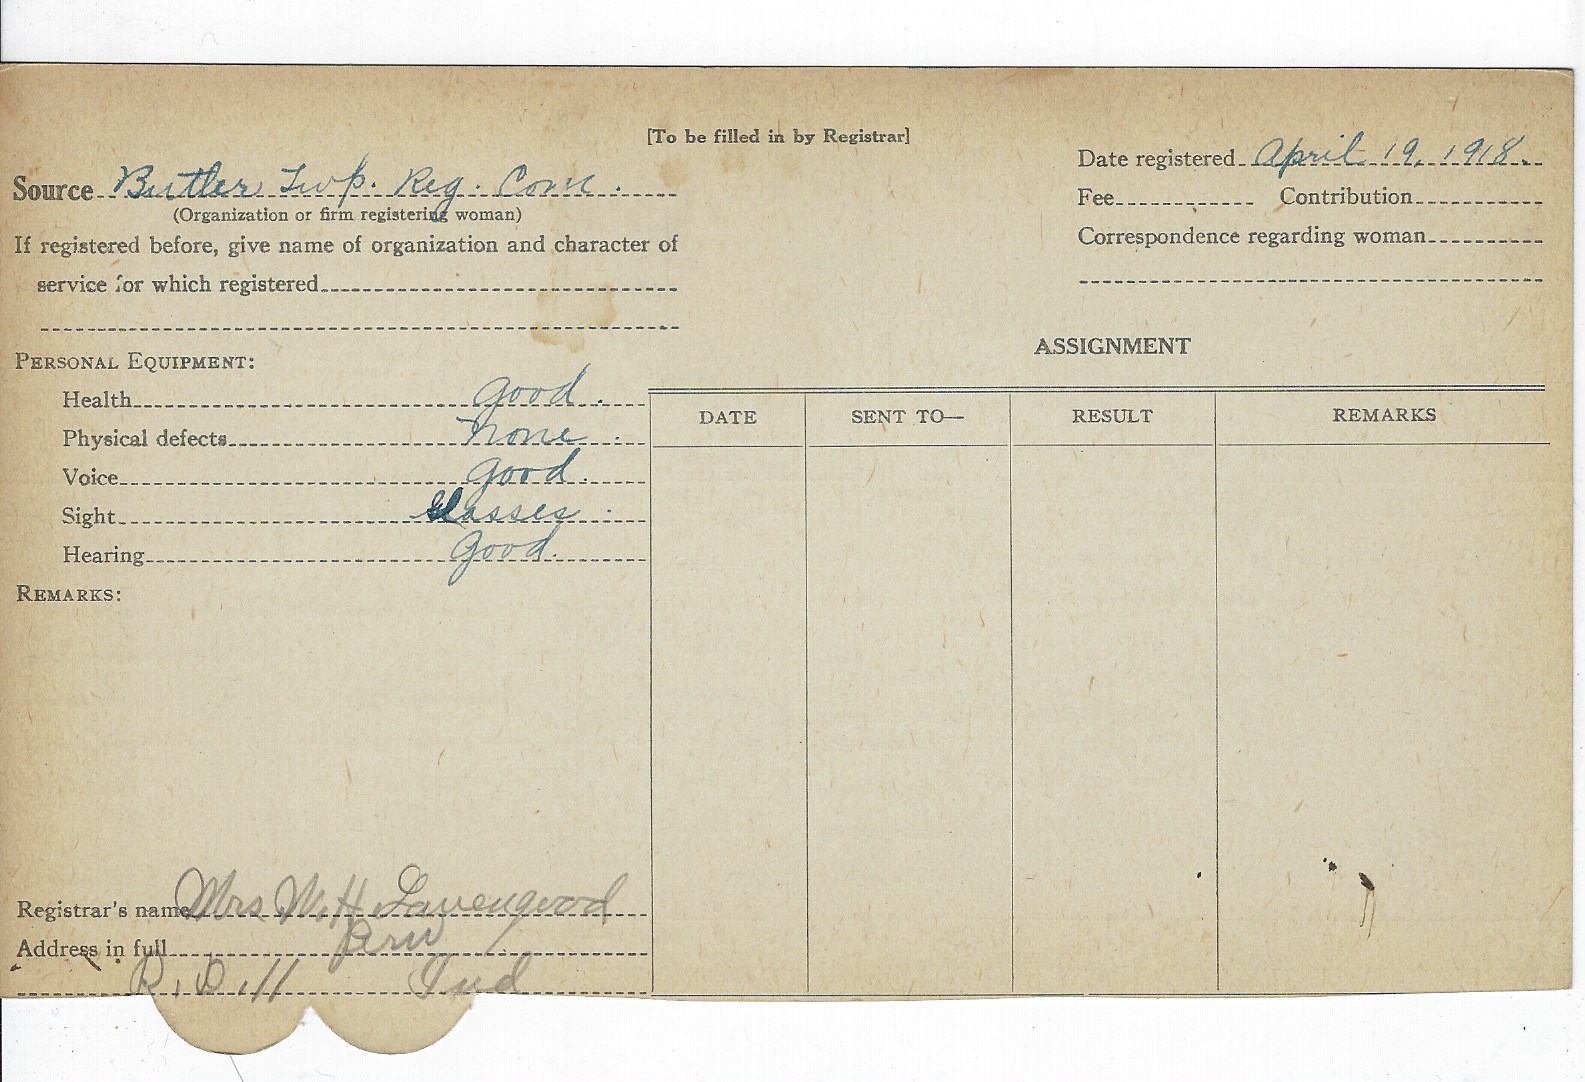 [To be filled in by Registrar]
Date registered April 19, 1918.
Source Butler Twp. Reg. Com.
(Organization or firm registering woman)
Fee Contribution
If registered before, give name of organization and character of
service for which registered
Correspondence regarding woman
PERSONAL EQUIPMENT:
Health good.
Physical defects None.
Voice good.
Sight Glasses.
Hearing good.
REMARKS:
ASSIGNMENT
DATE SENT TO— RESULT REMARKS
Registrar's name Mrs M. H. Lavengood
Address in full Peru
R. D. 11 Ind